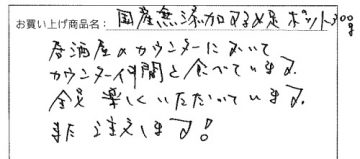 お買い上げ商品名: 国産無添加マヌ足ポット300g
居酒屋のカウンターにおいて
カウンター仲間と食べています。
全員楽しくいただいています。
また注文します!